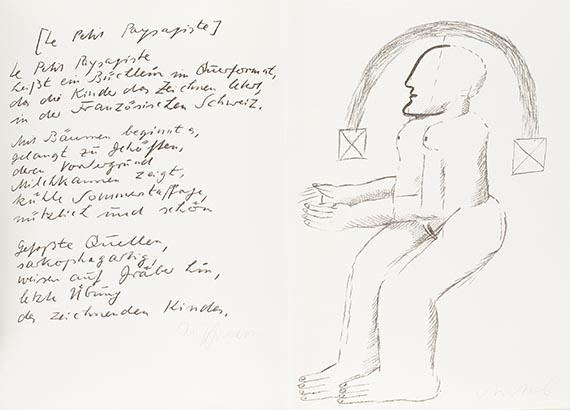 [Le Petit Paysagiste]
Le Petit Paysagiste
heißt ein Büchlein im Querformat,
das die Kinder das Zeichnen lehrt,
in der Französischen Schweiz.
Mit Bäumen beginnt es,
gelangt zu Gehöften,
deren Vordergrund
Milchkannen zeigt,
kühle Sommerstaffage,
nützlich und schön
Gefaßte Quellen,
sarkophagartig,
weisen auf Gräber hin,
letzte Übung
des zeichnenden Kindes.